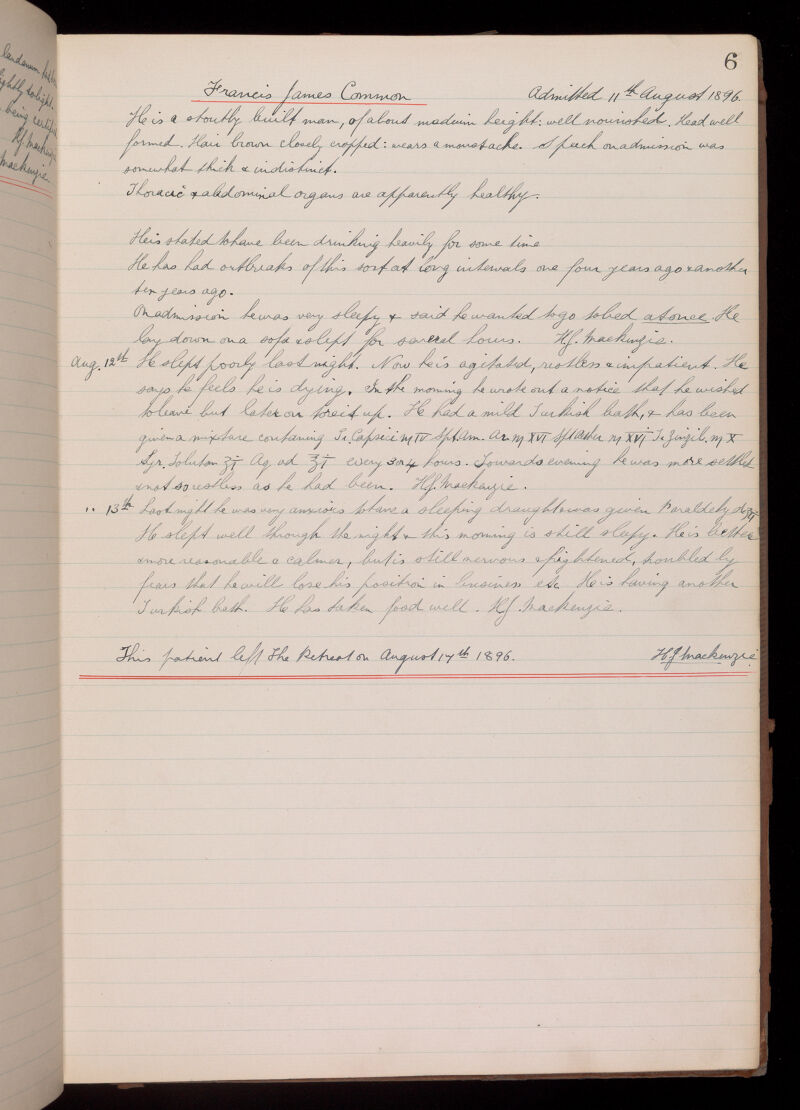 6
Francis James Common Admitted 11th August 1896.
He is a stoutly built man, of about meduim height: well nourished. Head well
formed. Hair brown closely cropped: wears a moustache. Speech on admission was
somewhat thick & indistinct.
Thoracic & abdominal organs are apparently healthy.
He is stated to have been drinking heavily for some time
He has had outbreaks of this sort at long intervals one four years ago & another
ten years ago.
On admission he was very sleepy & said he wanted to go to bed at once. He
lay down on a sofa & slept for several hours. H.J. Mackenzie.
Aug. 12th He slept poorly last night. Now he is agitated, restless & impatient. He
says he feels he is dying. In the morning he wrote out a notice that he wished
to leave but later on tore it up. He had a mild Turkish bath, & has been
given a mixture containing Tr. Capsici m IV Spt. Am. Ar. m XVI Spt Aether m XVI Tr. Zingib. m X
Syr. Tolutan ʒi Aq. ad ℥i every 3 or 4 hours. Towards evening he was more settled
& not so restless as he had been. H.J. Mackenzie.
" 13th Last night he was very anxious to have a sleeping draught & was given Paraldehyde
He slept well through the night & this morning is still sleepy. He is better
& more reasonable & calmer, but is still nervous & frightened, troubled by
fears that he will lose his position in business etc. He is having another
Turkish bath. He has taken food well. H.J. Mackenzie.
This patient left The Retreat on August 17th 1896. H.J. Mackenzie
laudanum
being certified
H.J. Mackenzie
Mackenzie